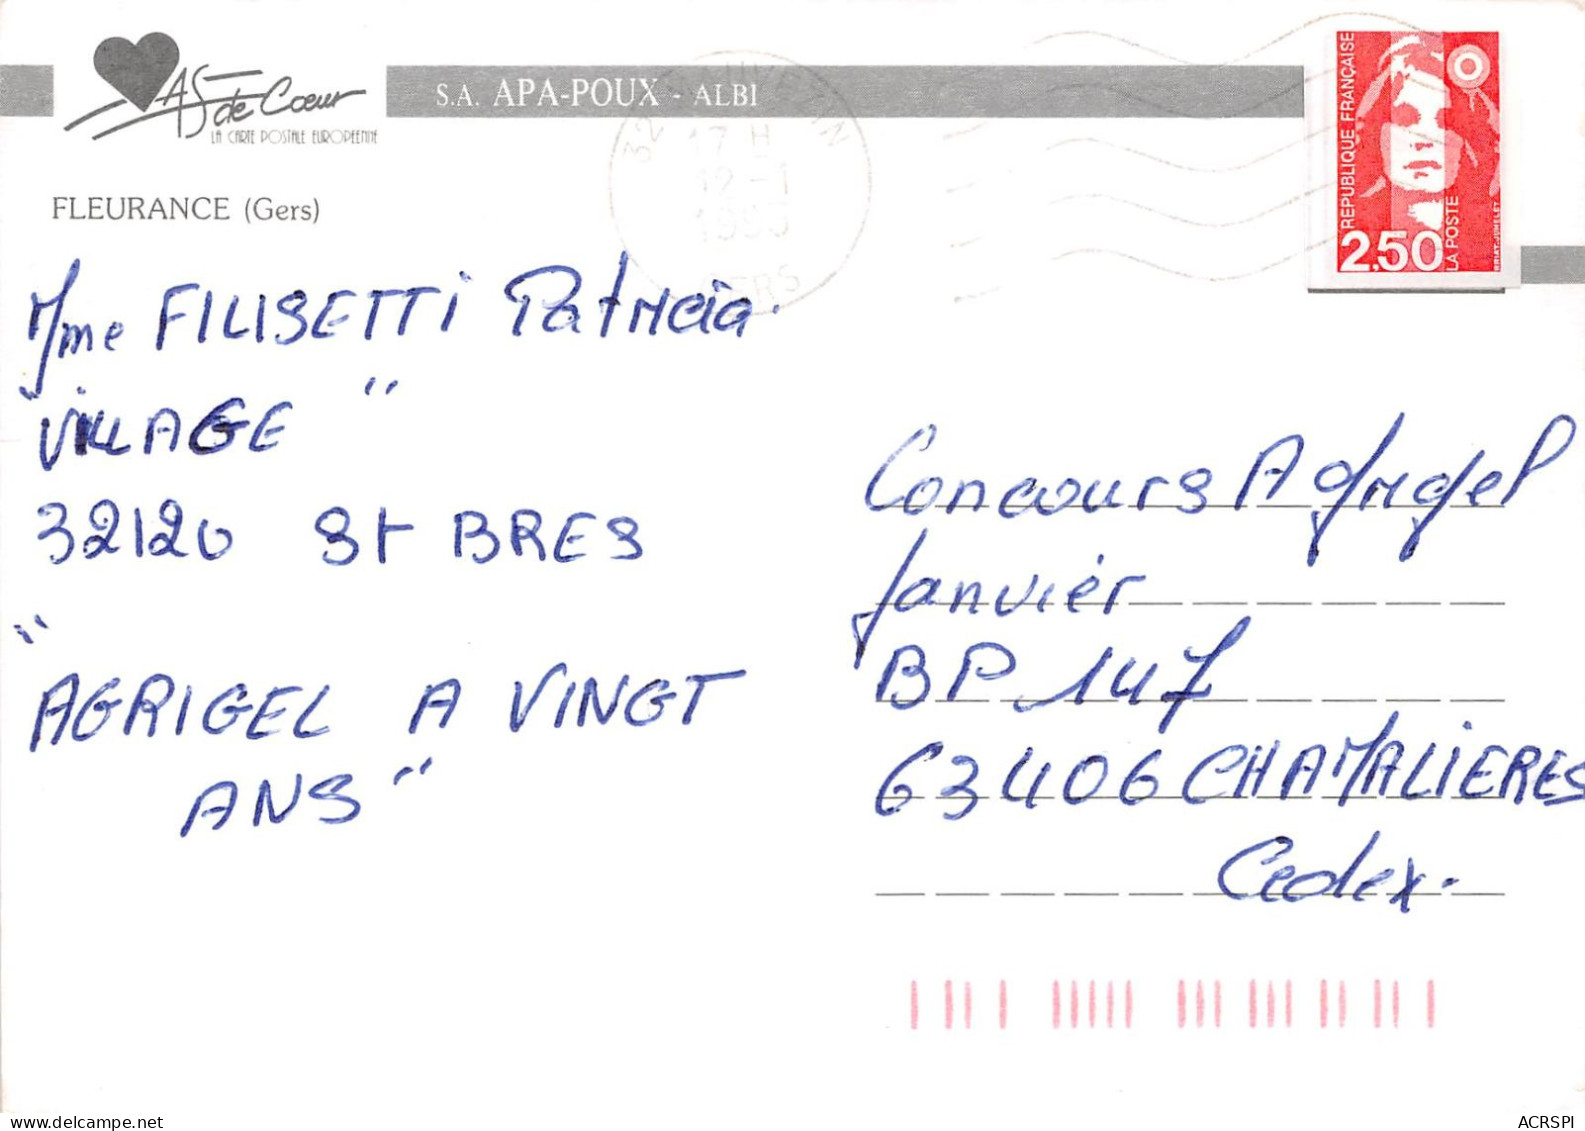 AS de Coeur
LA CARTE POSTALE EUROPEENNE
S.A. APA-POUX - ALBI
FLEURANCE (Gers)
17 H
12-1
GERS
REPUBLIQUE FRANÇAISE
LA POSTE
2,50
BRIAT-JUMELET
Mme FILISETTI Patricia.
"VILLAGE"
32120 St BRES
"AGRIGEL A VINGT
ANS"
Concours Agrigel
Janvier
BP 147
63406 CHAMALIERES
Cedex.
delcampe.net
ACRSPI